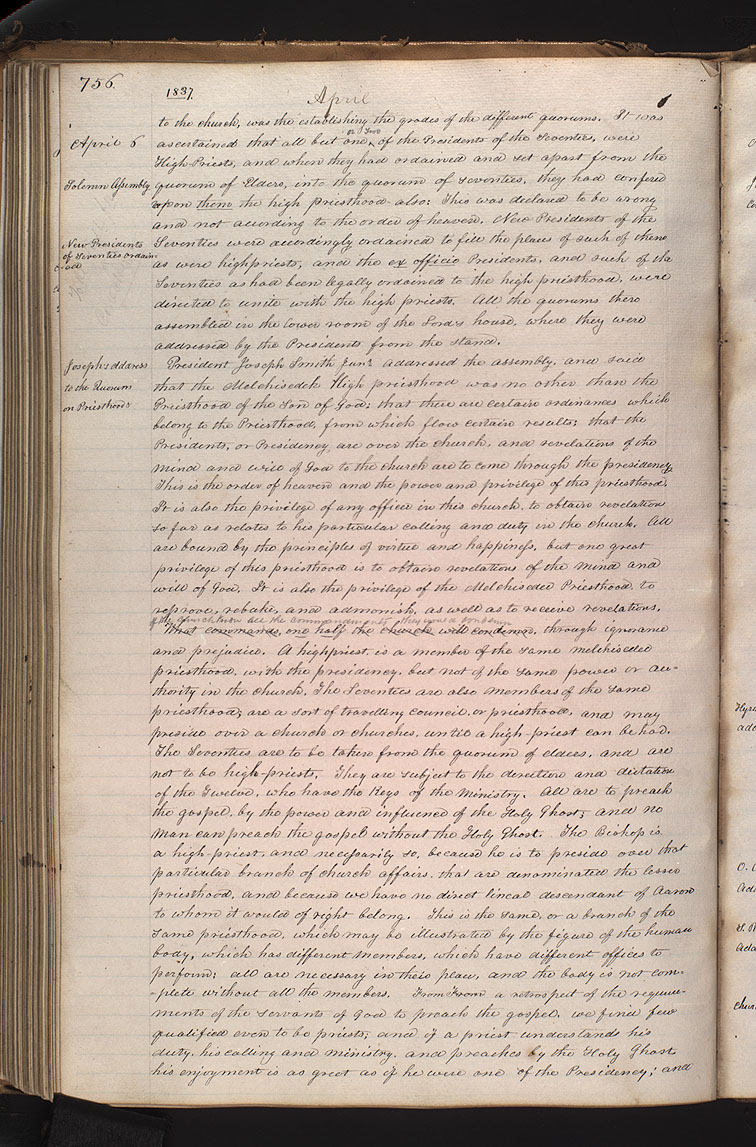 756.
1837.
April
to the church, was the establishing the grades of the different quorums. It was
April 6
or two
ascertained that all but one of the Presidents of the Seventies, were
High-Priests, and when they had ordained and set apart from the
Solemn Assembly
quorum of Elders, into the quorum of seventies, they had confered
upon them the high priesthood also: This was declared to be wrong
and not according to the order of heaven. New Presidents of the
New Presidents
of Seventies ordain-
ed
Seventies were accordingly ordained to fill the places of such of them
as were highpriests, and the ex officio Presidents, and such of the
Seventies as had been legally ordained to the high priesthood, were
directed to unite with the high priests. All the quorums then
assembled in the lower room of the Lord's house, where they were
addressed by the Presidents from the stand.
Joseph's address
to the Quorum
on Priesthood
President Joseph Smith Junr. addressed the assembly, and said
that the Melchisedek High priesthood was no other than the
Priesthood of the Son of God; that there are certain ordinances which
belong to the Priesthood, from which flow certain results; that the
Presidents, or Presidency, are over the church, and revelations of the
mind and will of God to the church are to come through the presidency.
This is the order of heaven and the power and privilege of this priesthood.
It is also the privilege of any officer in this church, to obtain revelation
so far as relates to his particular calling and duty in the church. All
are bound by the principles of virtue and happiness, but one great
privilege of this priesthood is to obtain revelations of the mind and
will of God. It is also the privilege of the Melchisedec Priesthood, to
reprove, rebuke, and admonish, as well as to receive revelations.
if the church knew all the commandments they would condemn
What commands, one half the church will condemn, through ignorance
and prejudice. A highpriest is a member of the same melchisedec
priesthood, with the presidency, but not of the same power or au-
thority in the church. The Seventies are also members of the same
priesthood; are a sort of travelling council, or priesthood, and may
preside over a church or churches, until a high-priest can be had.
The Seventies are to be taken from the quorum of elders, and are
not to be high-priests. They are subject to the direction and dictation
of the Twelve, who have the Keys of the Ministry. All are to preach
the gospel, by the power and influence of the Holy Ghost; and no
man can preach the gospel without the Holy Ghost. The Bishop is
a high-priest, and necessarily so, because he is to preside over that
particular branch of church affairs, that are denominated the lesser
priesthood, and because we have no direct lineal descendant of Aaron
to whom it would of right belong. This is the same, or a branch of the
same priesthood, which may be illustrated by the figure of the human
body, which has different members, which have different offices to
perform; all are necessary in their place, and the body is not com-
-plete without all the members. From From a retrospect of the require-
ments of the servants of God to preach the gospel, we find few
qualified even to be priests, and if a priest understands his
duty, his calling and ministry, and preaches by the Holy Ghost
his enjoyment is as great as if he were one of the Presidency; and